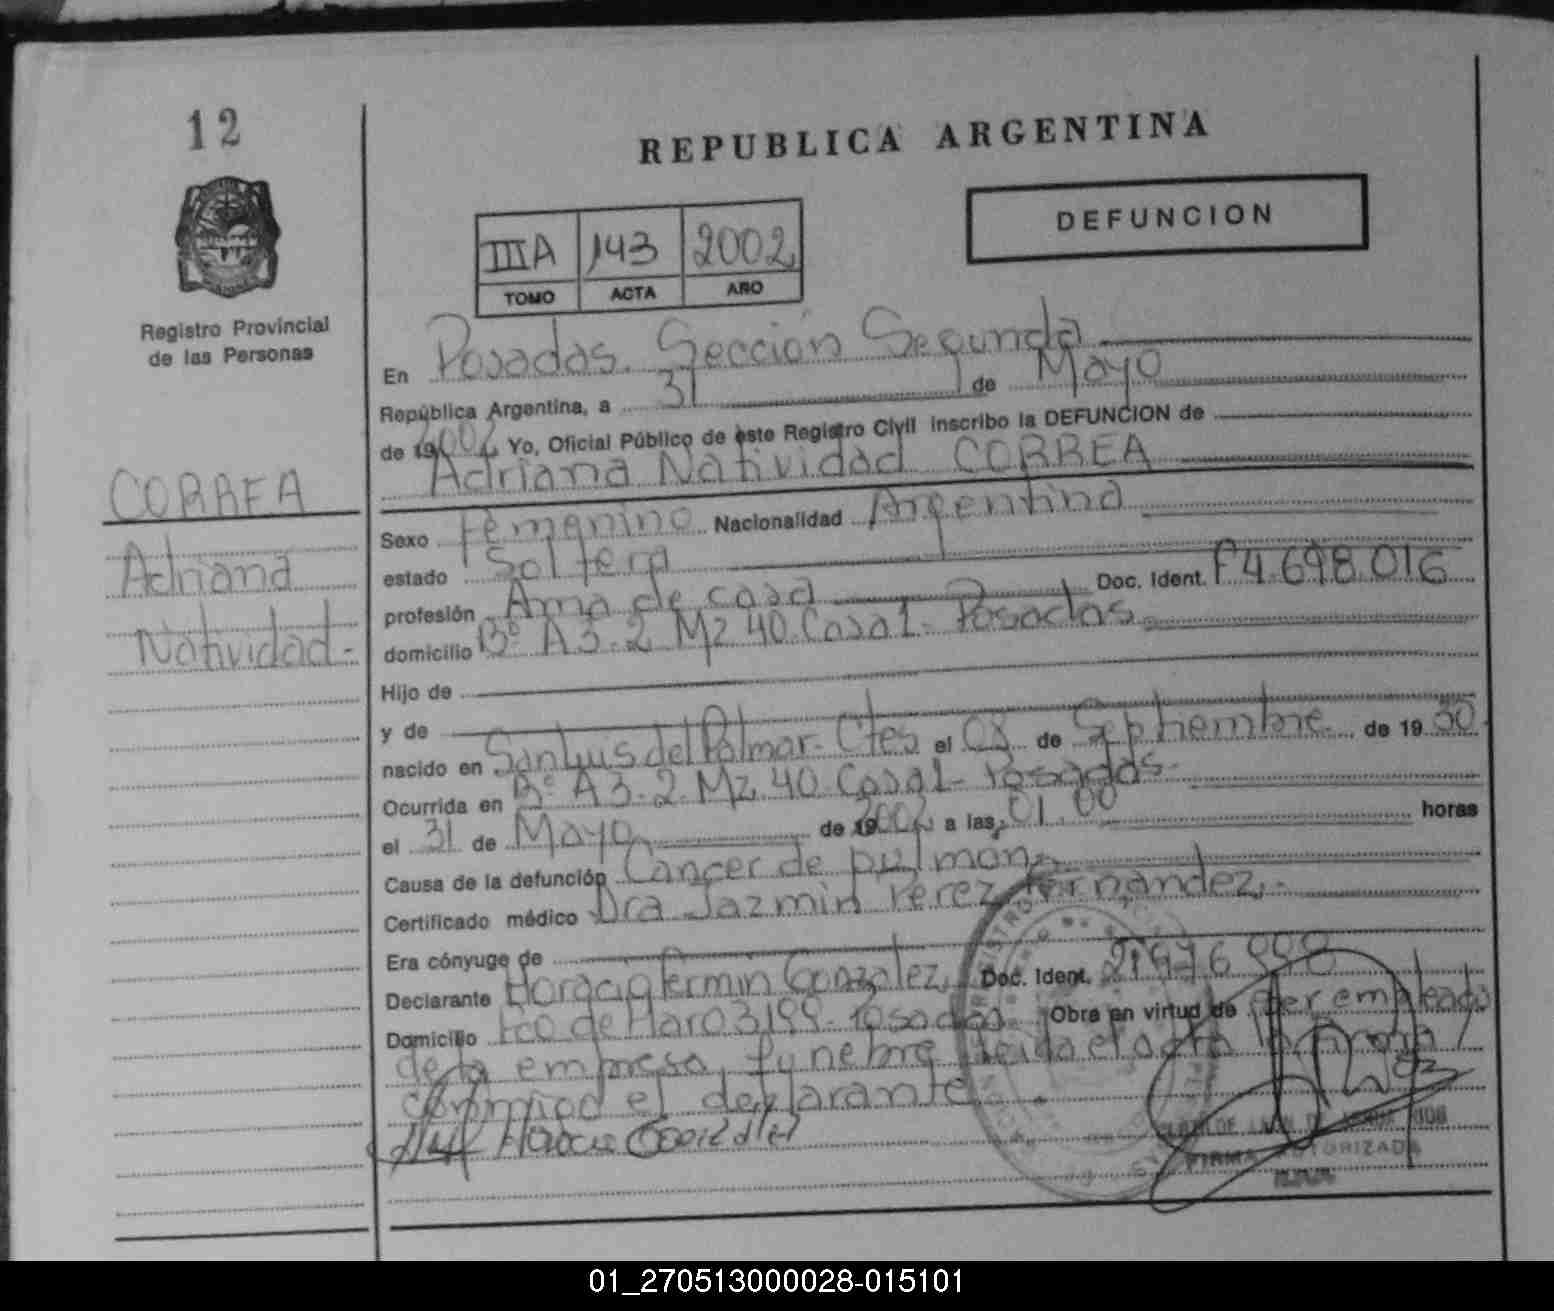 12
REPUBLICA ARGENTINA
DEFUNCION
IIIA 143 2002
TOMO ACTA AÑO
Registro Provincial
de las Personas
CORREA
Adriana
Natividad.-
En Posadas. Sección Segunda
República Argentina, a 31 de Mayo
de 2002 Yo, Oficial Público de este Registro Civil inscribo la DEFUNCION de
Adriana Natividad CORREA
Sexo Femenino Nacionalidad Argentina
estado Soltera
profesión Ama de casa Doc. Ident. F4.698.016
domicilio Bº A3-2 Mz 40. Casa 1- Posadas.
Hijo de
y de
nacido en San Luis del Palmar- Ctes el 08 de Septiembre de 19
Ocurrida en Bº A3-2. Mz. 40. Casa 1- Posadas.-
el 31 de Mayo de 2002 a las 01.00 horas
Causa de la defunción Cancer de pulmon
Certificado médico Dra Jazmin Perez Fernandez.-
Era cónyuge de
Declarante Horacio Fermin Gonzalez Doc. Ident.
Domicilio Fco de Haro 3199- Posadas. Obra en virtud de ser empleado
de la empresa fúnebre leida el acta la firma
conmigo el declarante.
FIRMA AUTORIZADA
01_270513000028-015101